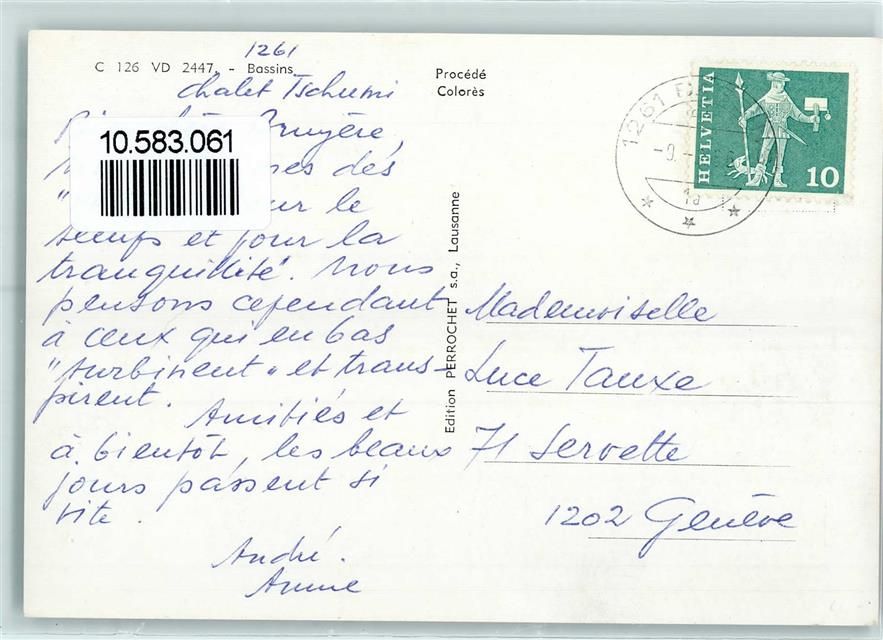 1261
C 126 VD 2447. - Bassins
Procédé
Colorès
chalet Tschumi
Bruyère,
10.583.061
dés
ur le
temps et pour la
tranquillité. Nous
pensons cependant
à ceux qui en bas
"turbinent" et trans-
pirent.
Amitiés et
à bientôt, les beaux
jours passent si
vite.
André.
Anne
Edition PERROCHET s.a., Lausanne
1261
HELVETIA
10
Mademoiselle
Luce Tauxe
71 Servette
1202 Genève